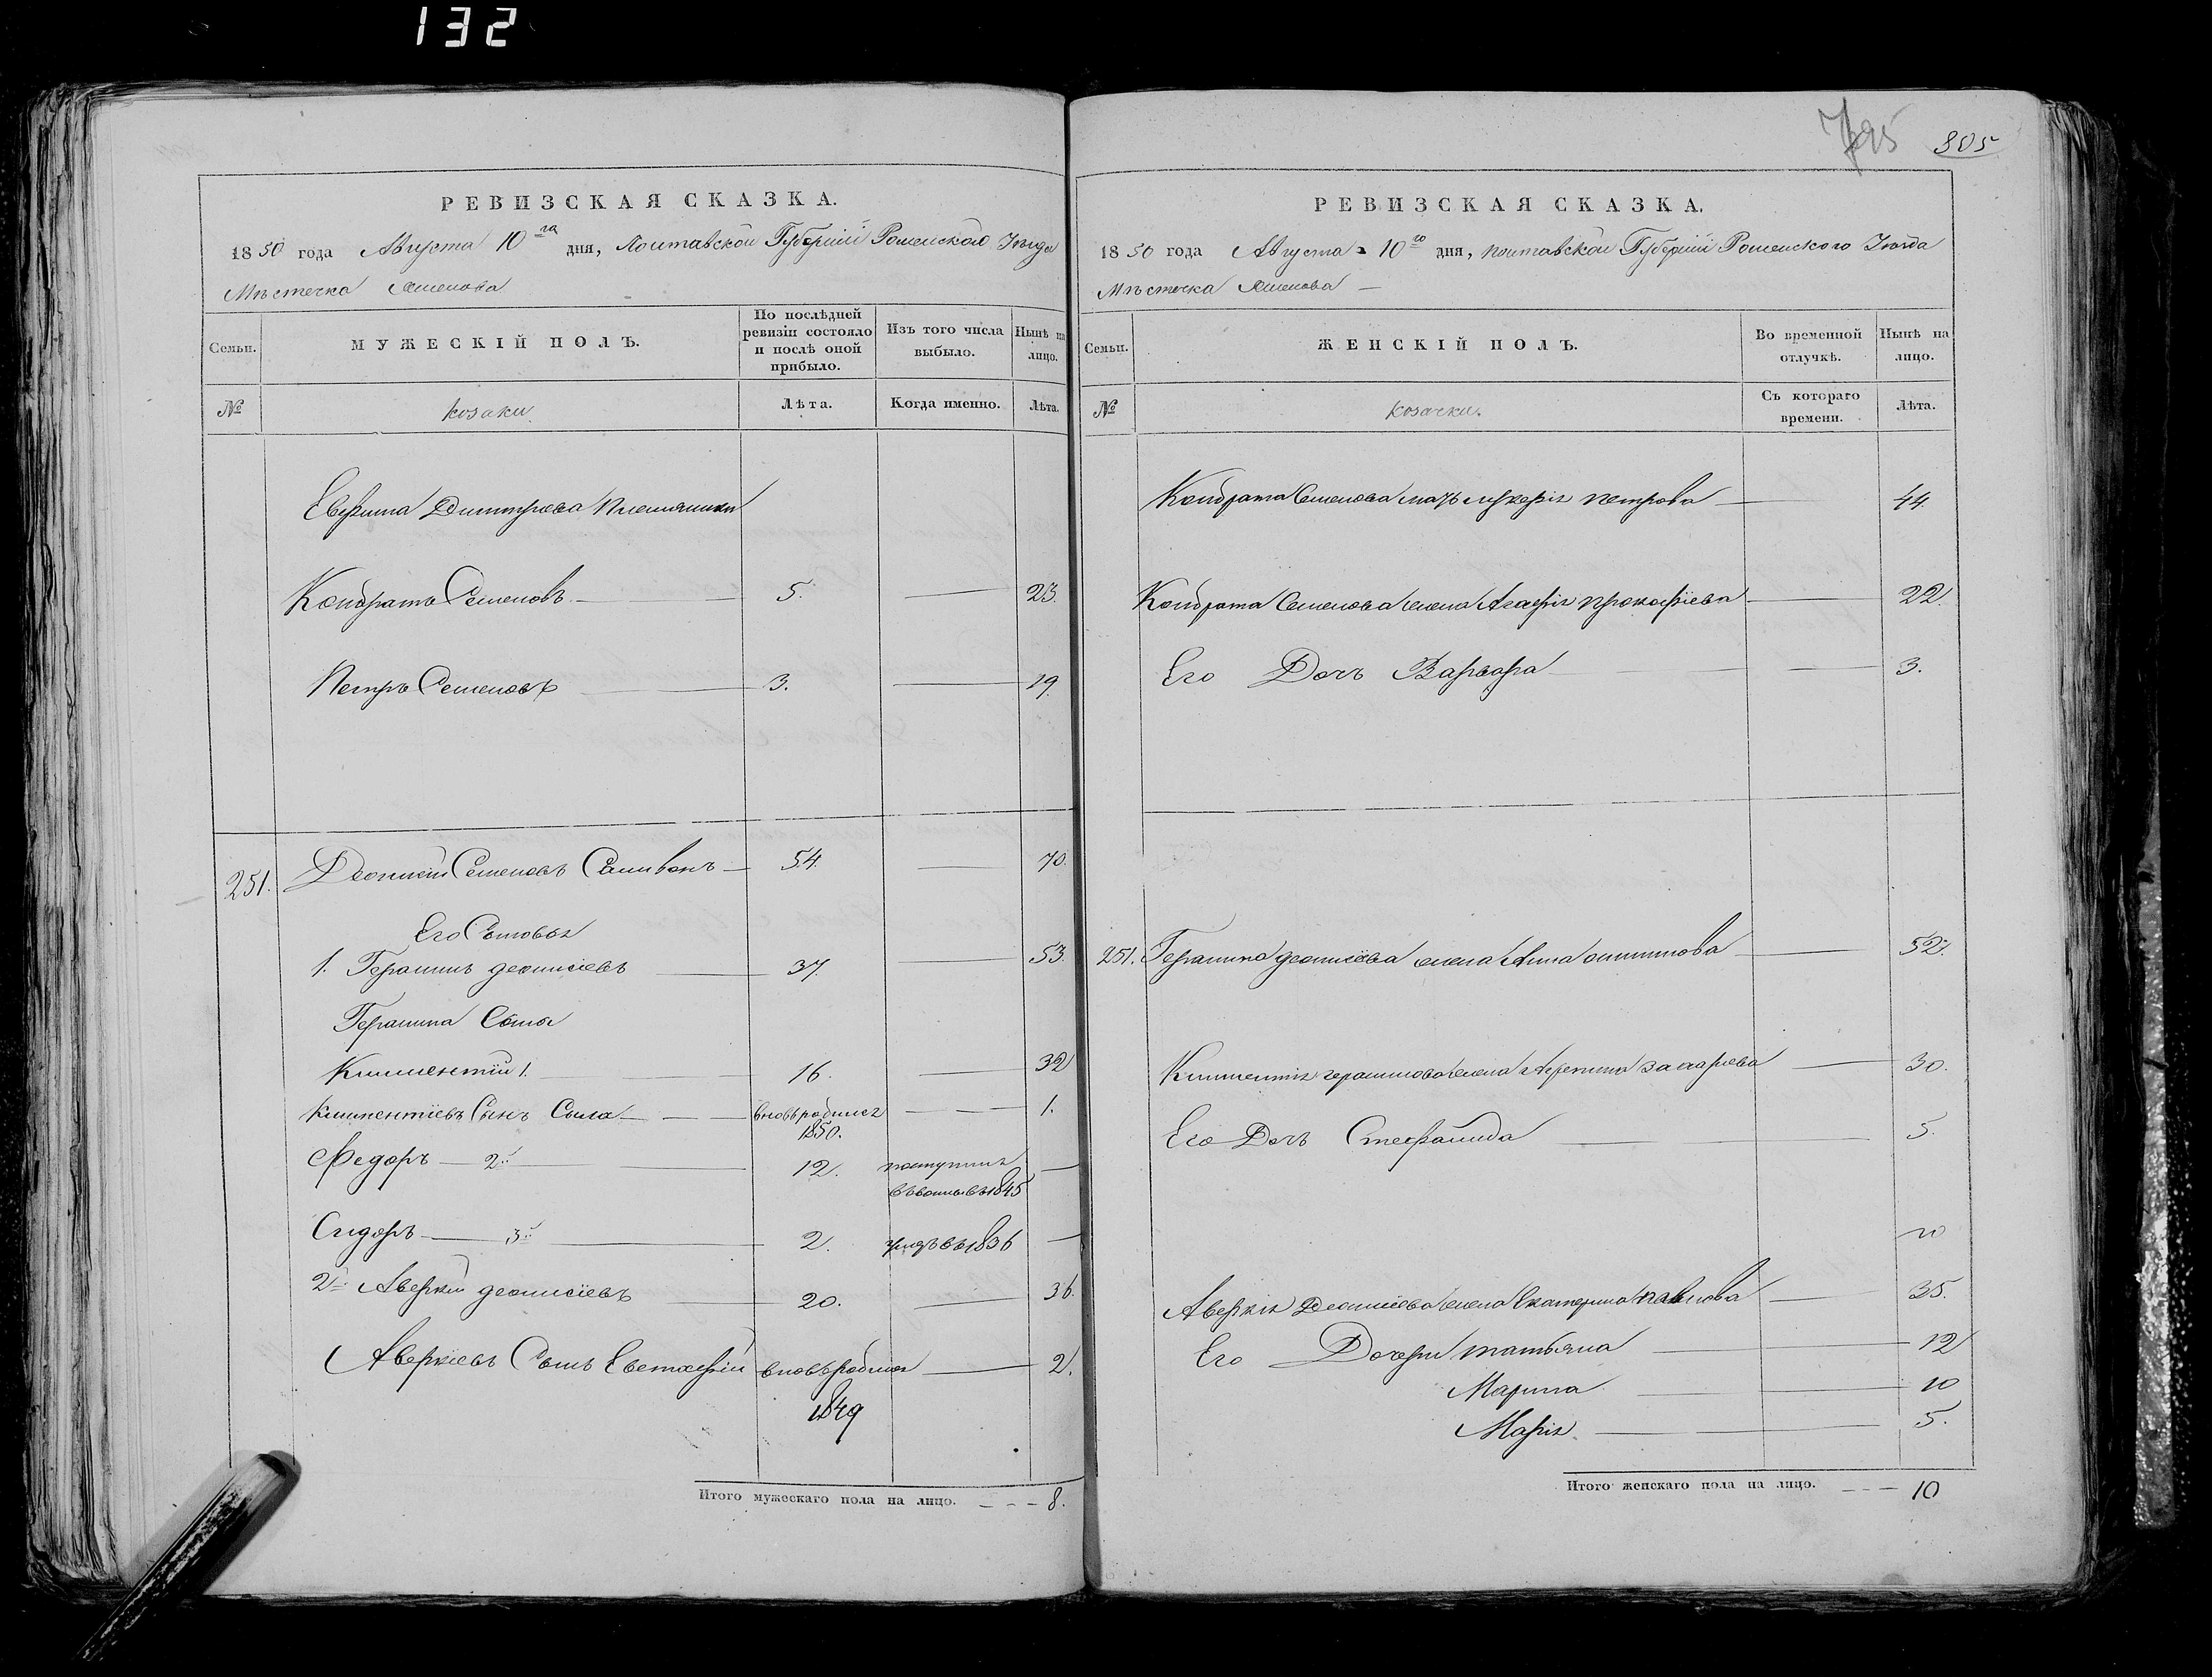 132
РЕВИЗСКАЯ СКАЗКА.
1850 года Августа 10го дня, Полтавской Губерніи Роменского Уезда
Местечка Смелова
Семьи.
МУЖЕСКІЙ ПОЛЪ.
По послѣдней ревизіи состояло и послѣ оной прибыло.
Изъ того числа выбыло.
Нынѣ на лицо.
№
козаки
Лѣта.
Когда именно.
Лѣта.
Дмитріева Племянники
Кондратъ Семеновъ 5. 23.
Петръ Семеновъ 3. 19.
251. Деонисій Семеновъ 54. 70.
Его Сыновья
1. Герасимъ деонисіевъ 37. 53.
Герасима Сыны
Климентій 1. 16. 32
Климентіевъ Сынъ Сыла вновь родился 1. 1850.
Федоръ 2й 12. поступилъ
въ 1845
Сидоръ 3й 2. умеръ въ 1836
2й Аверкій деонисіевъ 20. 36.
Аверкіевъ Сынъ Евстафій вновь родился 2.
1849
Итого мужескаго пола на лицо. 8.
795 805
РЕВИЗСКАЯ СКАЗКА.
1850 года Августа 10го дня, Полтавской Губерніи Роменского Уезда
Местечка Смелова
Семьи.
ЖЕНСКІЙ ПОЛЪ.
Во временной отлучкѣ.
Нынѣ на лицо.
№
козачки.
Съ котораго времени.
Лѣта.
Кондрата Семенова мать Лукерія Петрова 44.
Кондрата Семенова жена Агафія Прокофіева 22.
Его Дочь Варвара 3.
251. Герасима деонисіева жена Анна 52.
Климентія герасимова жена Захаріева 30.
Его Дочь Стефанида 5.
10
Аверкія Деонисіева жена Екатерина Павлова 35.
Его Дочери Татьяна 12
Марина 10
Марія 5.
Итого женскаго пола на лицо. 10